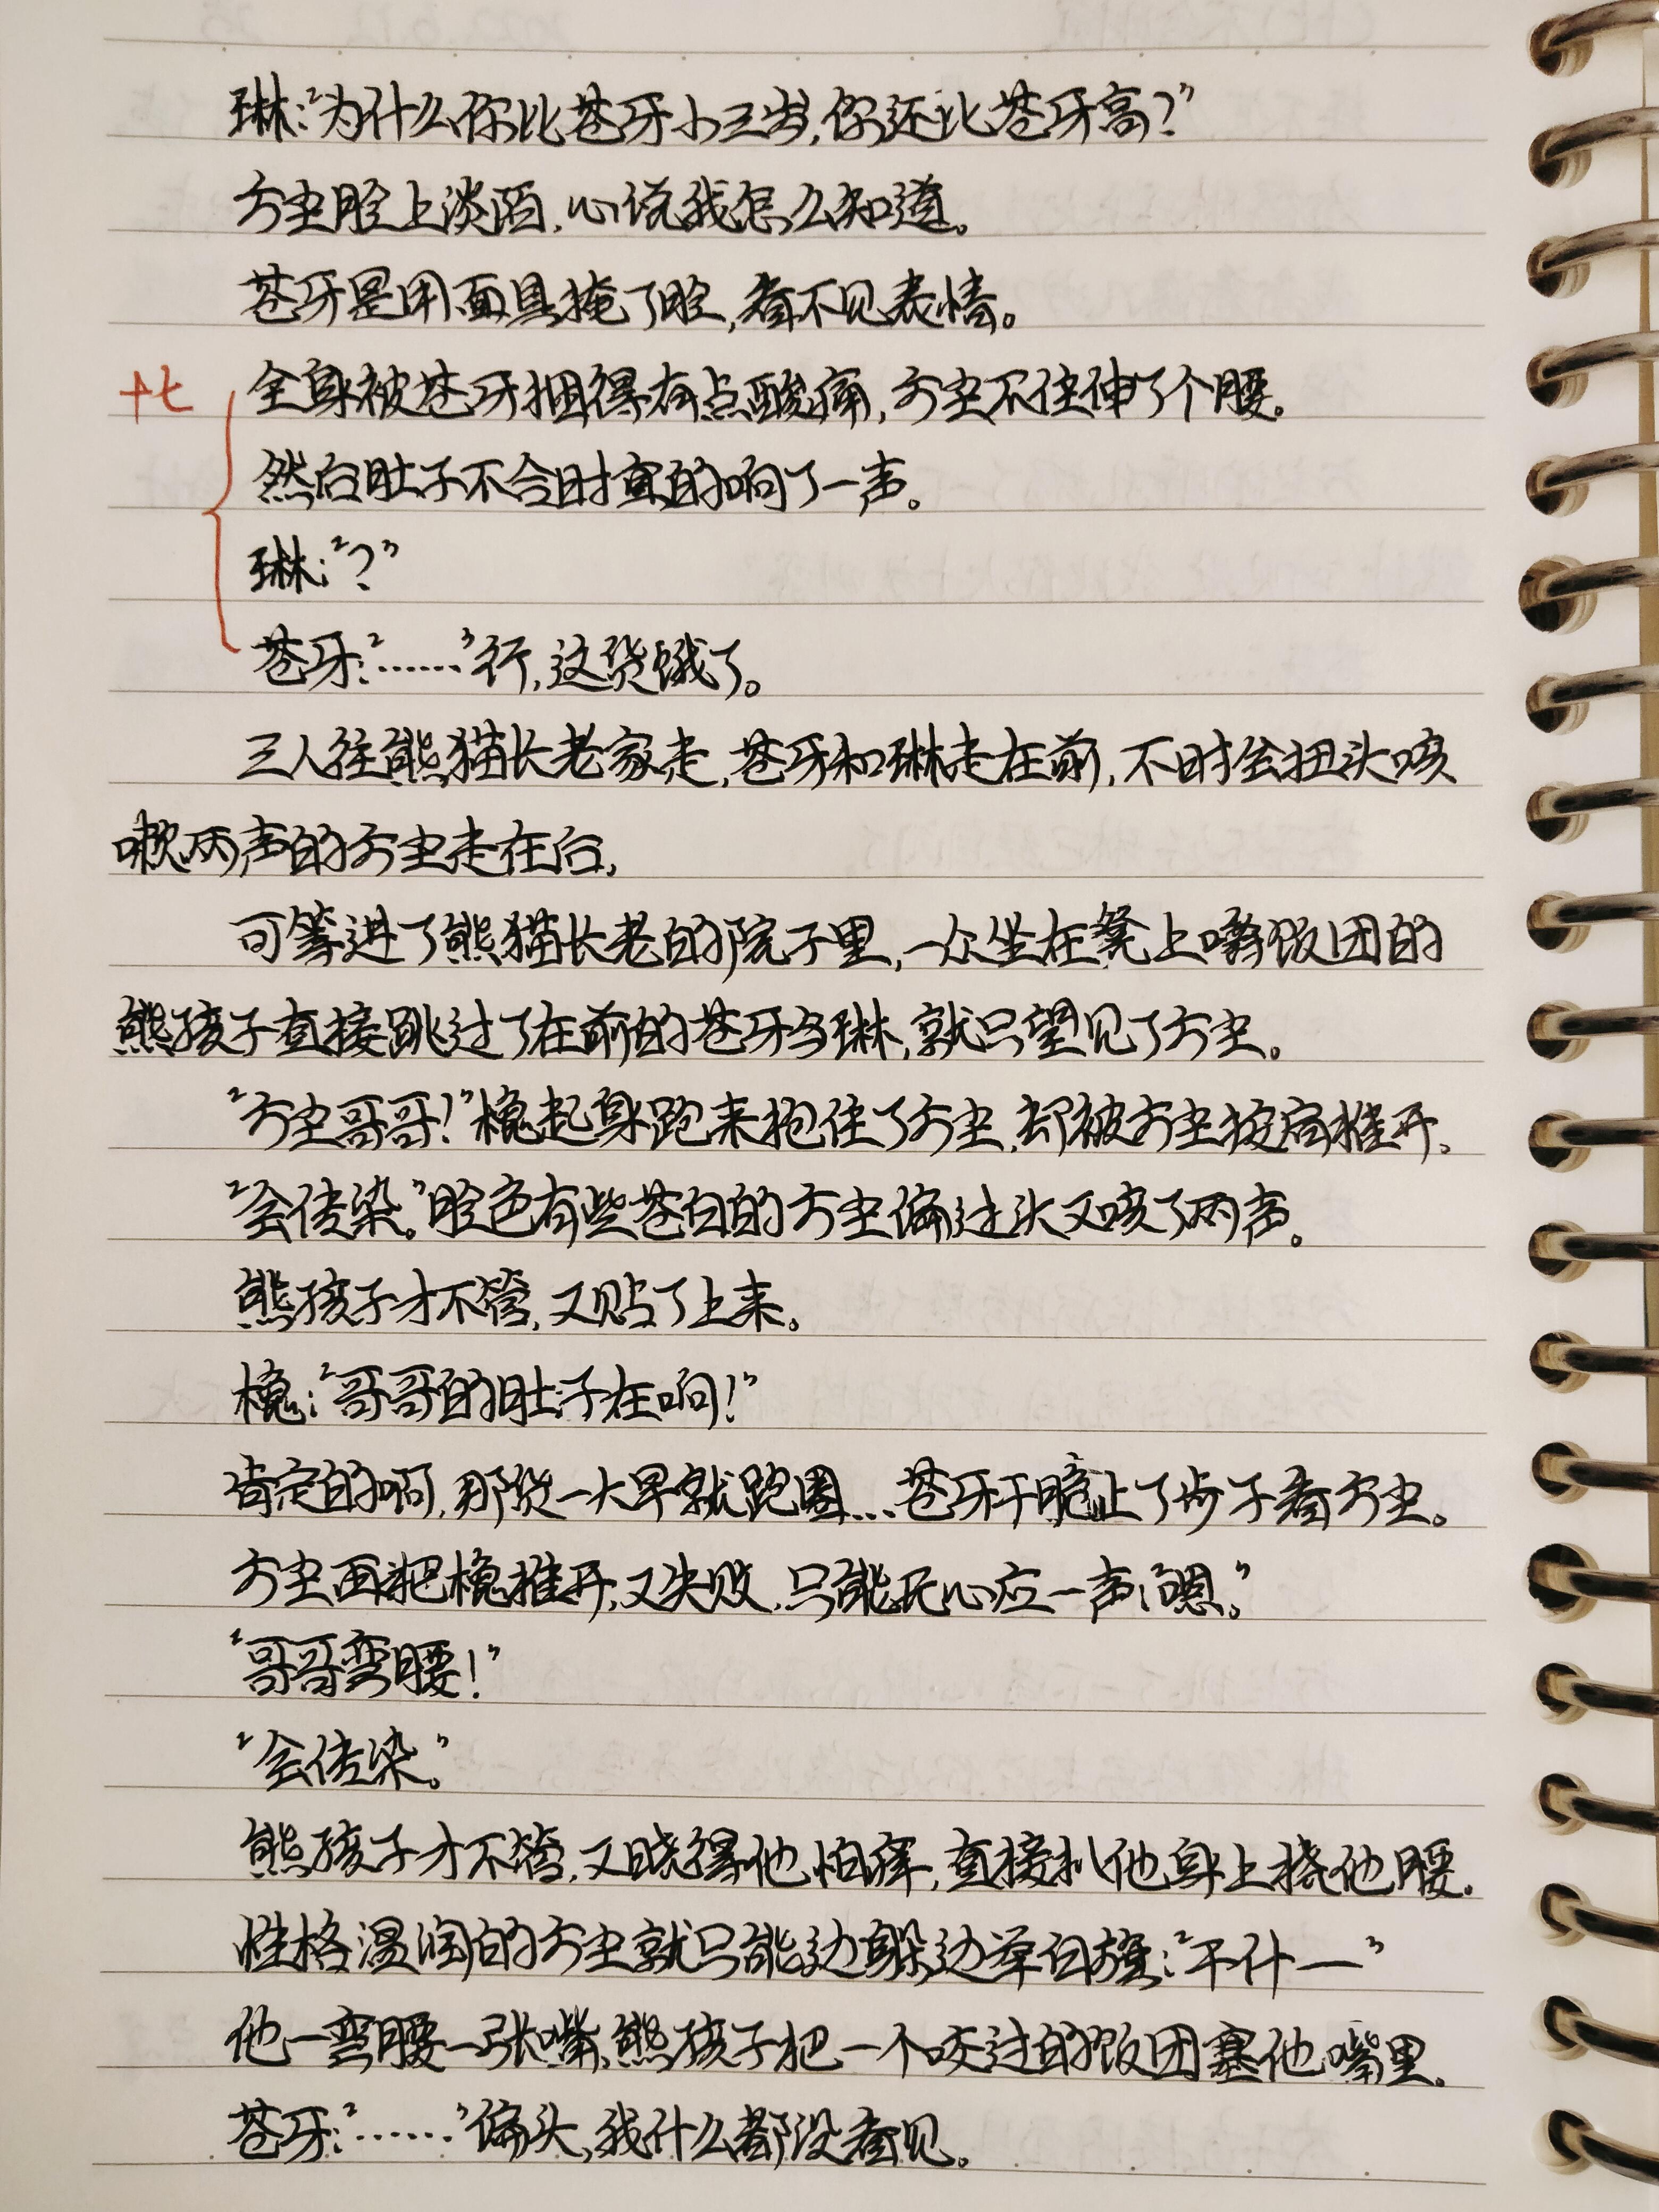 琳:“为什么你比苍牙小三岁,你还比苍牙高?”
方尘脸上淡陌,心说我怎么知道。
苍牙是用面具掩了脸,看不见表情。
十七
全身被苍牙捆得有点酸痛,方尘不住伸了个腰。
然后肚子不合时宜的响了一声。
琳:“?”
苍牙:“……”行,这货饿了。
三人往熊猫长老家走,苍牙和琳走在前,不时会扭头咳
嗽两声的方尘走在后,
可等进了熊猫长老的院子里,一众坐在凳上嚼饭团的
熊孩子直接跳过了在前的苍牙与琳,就只望见了方尘。
“方尘哥哥!”槐起身跑来抱住了方尘,却被方尘按肩推开。
“会传染。”脸色有些苍白的方尘偏过头又咳了两声。
熊孩子才不管,又贴了上来。
槐:“哥哥的肚子在响!”
肯定的啊,那货一大早就跑圈...苍牙干脆止了步子看方尘。
方尘再把槐推开,又失败,只能无心应一声:“嗯。”
“哥哥弯腰!”
“会传染。”
熊孩子才不管,又晓得他怕痒,直接扒他身上挠他腰.
性格温润的方尘就只能边躲边举白旗:“干什—”
他一弯腰一张嘴,熊孩子把一个咬过的饭团塞他嘴里.
苍牙:“……”偏头,我什么都没看见。